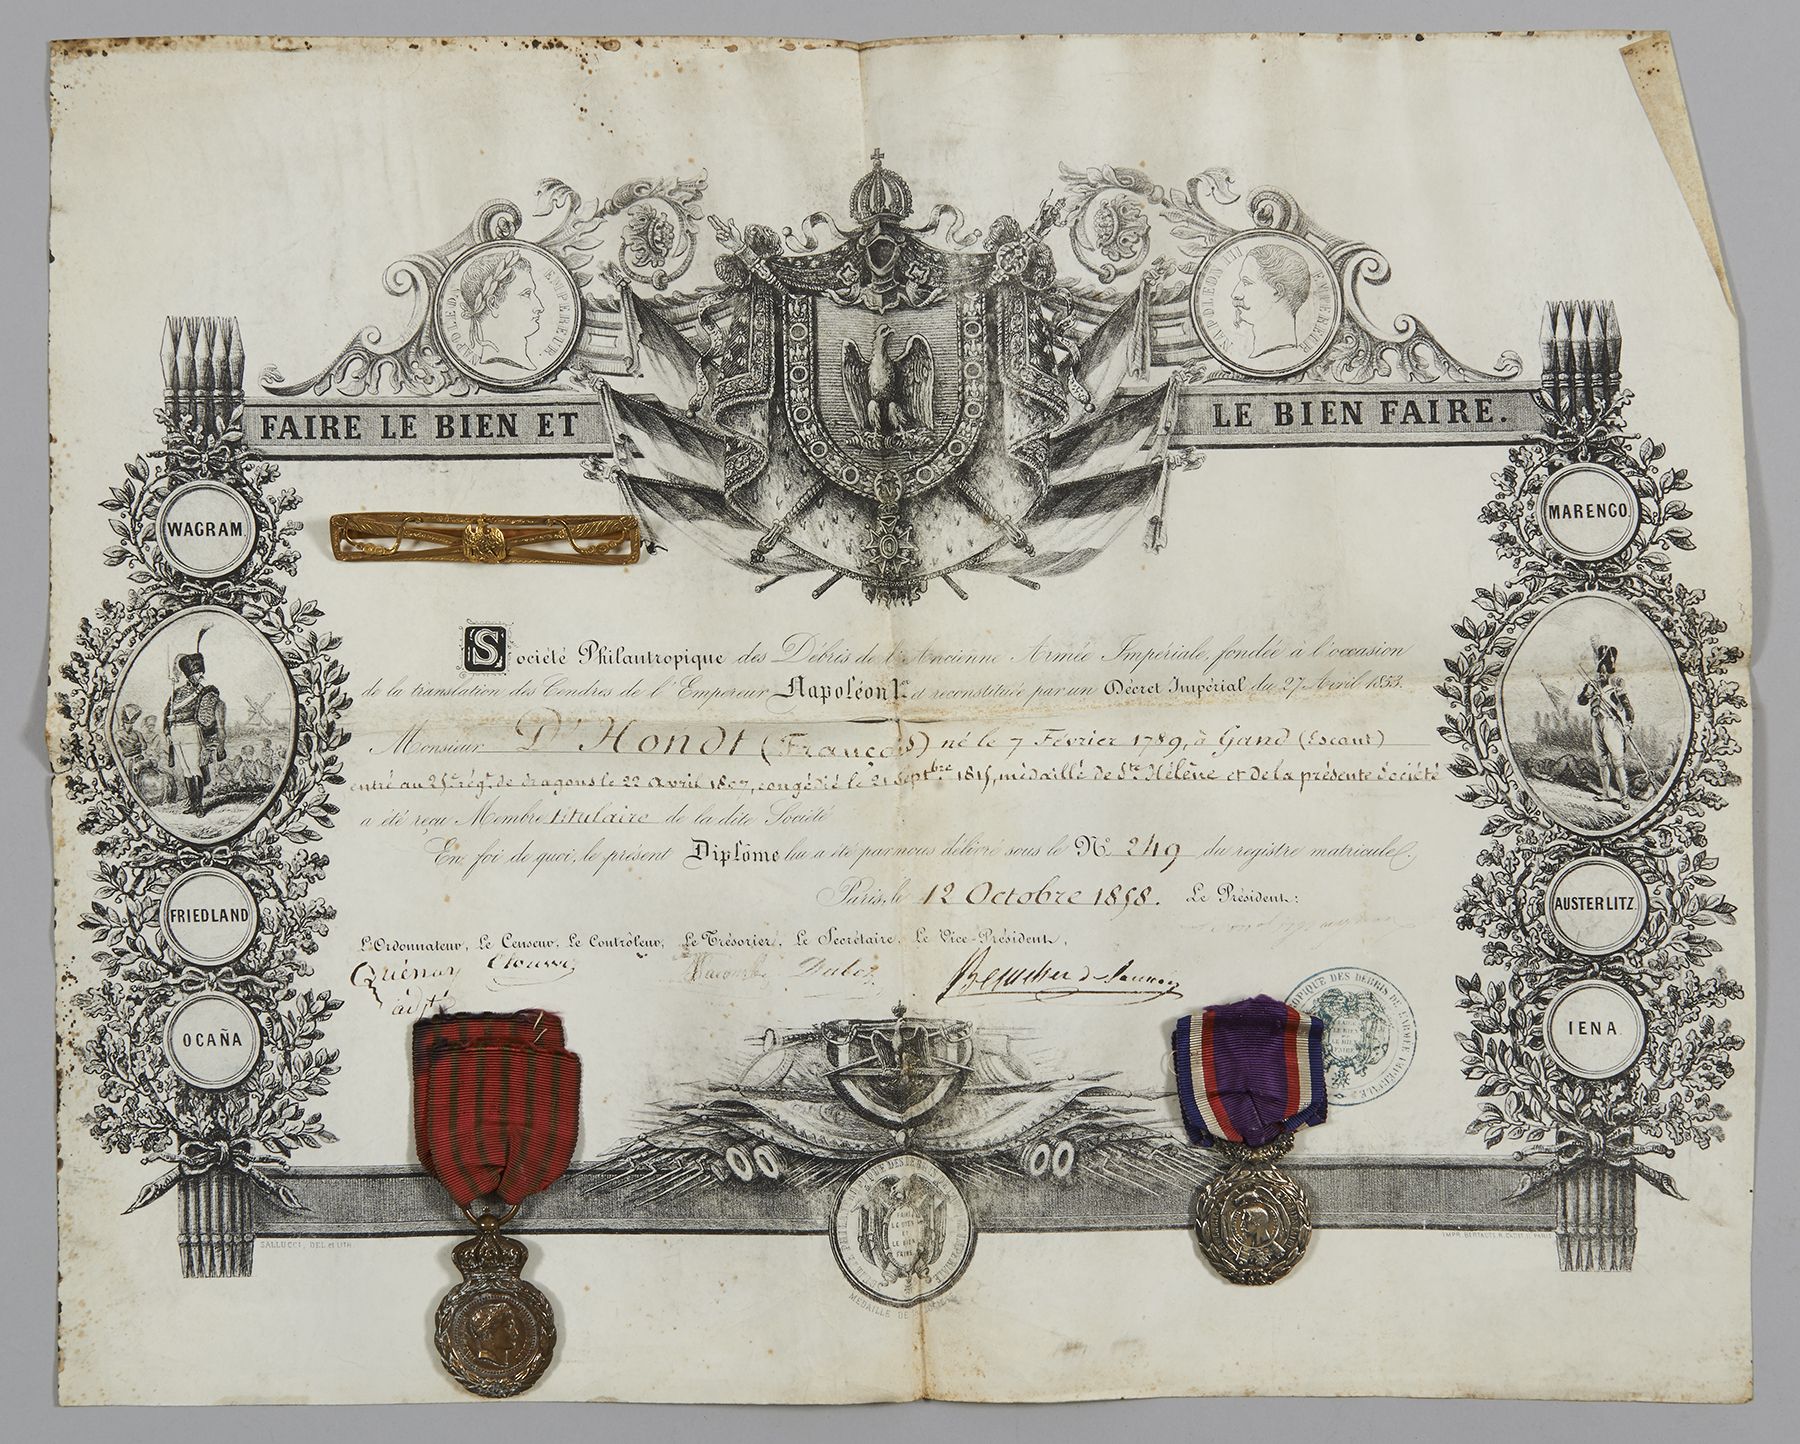 NAPOLEON EMPEREUR.
NAPOLEON III EMPEREUR
FAIRE LE BIEN ET LE BIEN FAIRE.
WAGRAM.
MARENGO.
Société Philantropique des Débris de l'Ancienne Armée Impériale, fondée à l'occasion
de la translation des Cendres de l'Empereur Napoléon 1er et reconstituée par un Décret Impérial du 27 Avril 1853.
Monsieur D'Hondt (François) né le 7 Février 1789, à Gand (Escaut)
entré au 25e régt de dragons le 22 avril 1807, congédié le 21 Septbre 1815, médaillé de Ste Hélène et de la présente Société
a été reçu Membre titulaire de la dite Société
En foi de quoi, le présent Diplôme lui a été par nous délivré sous le No 249 du registre matricule.
Paris, le 12 Octobre 1858. Le Président:
FRIEDLAND
AUSTERLITZ.
L'Ordonnateur, Le Censeur, Le Contrôleur, Le Trésorier, Le Secrétaire, Le Vice-Président,
OCAÑA
IENA.
DES DEBRIS DE L'ARMÉE IMPERIALE
LE BIEN
LE BIEN
FAIRE
DES DEBRIS
FAIRE
LE BIEN
ET
LE BIEN
FAIRE
MEDAILLE DE
SALLUCCI, DEL et LITH.
IMPR. BERTAUTS, R. CADET, 11, PARIS